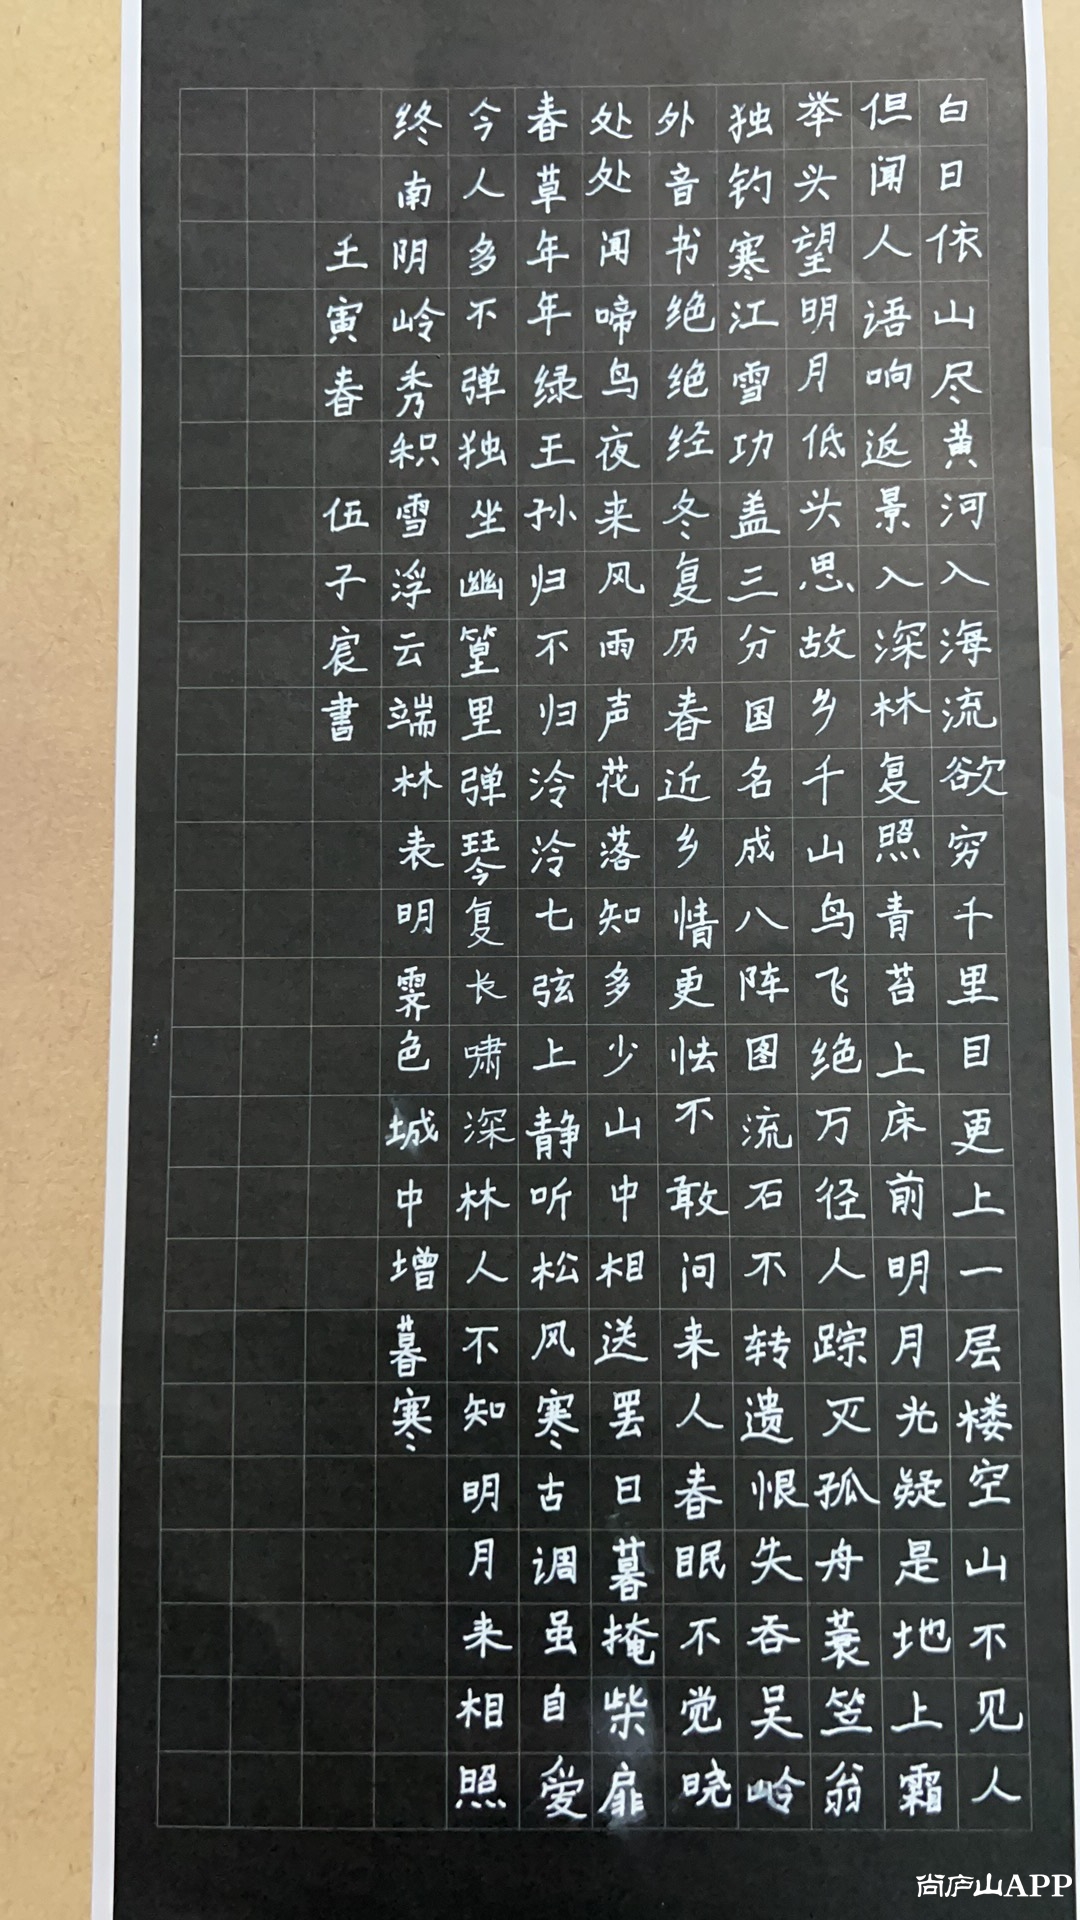 白日依山尽黄河入海流欲穷千里目更上一层楼空山不见人
但闻人语响返景入深林复照青苔上床前明月光疑是地上霜
举头望明月低头思故乡千山鸟飞绝万径人踪灭孤舟蓑笠翁
独钓寒江雪功盖三分国名成八阵图流石不转遗恨失吞吴岭
外音书绝绝经冬复历春近乡情更怯不敢问来人春眠不觉晓
处处闻啼鸟夜来风雨声花落知多少山中相送罢日暮掩柴扉
春草年年绿王孙归不归泠泠七弦上静听松风寒古调虽自爱
今人多不弹独坐幽篁里弹琴复长啸深林人不知明月来相照
终南阴岭秀积雪浮云端林表明霁色城中增暮寒
壬寅春 伍子宸書
尚庐山APP